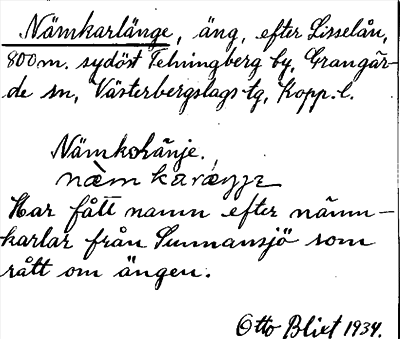 Nämkarlänge, äng, efter Lisselån,
800 m. sydöst Telningberg by, Grangär-
de sn, Västerbergslags tg, Kopp. l.
Nämkoränje.
Har fått namn efter nämn-
karlar från Sunnansjö som
rått om ängen.
Otto Blixt 1934.